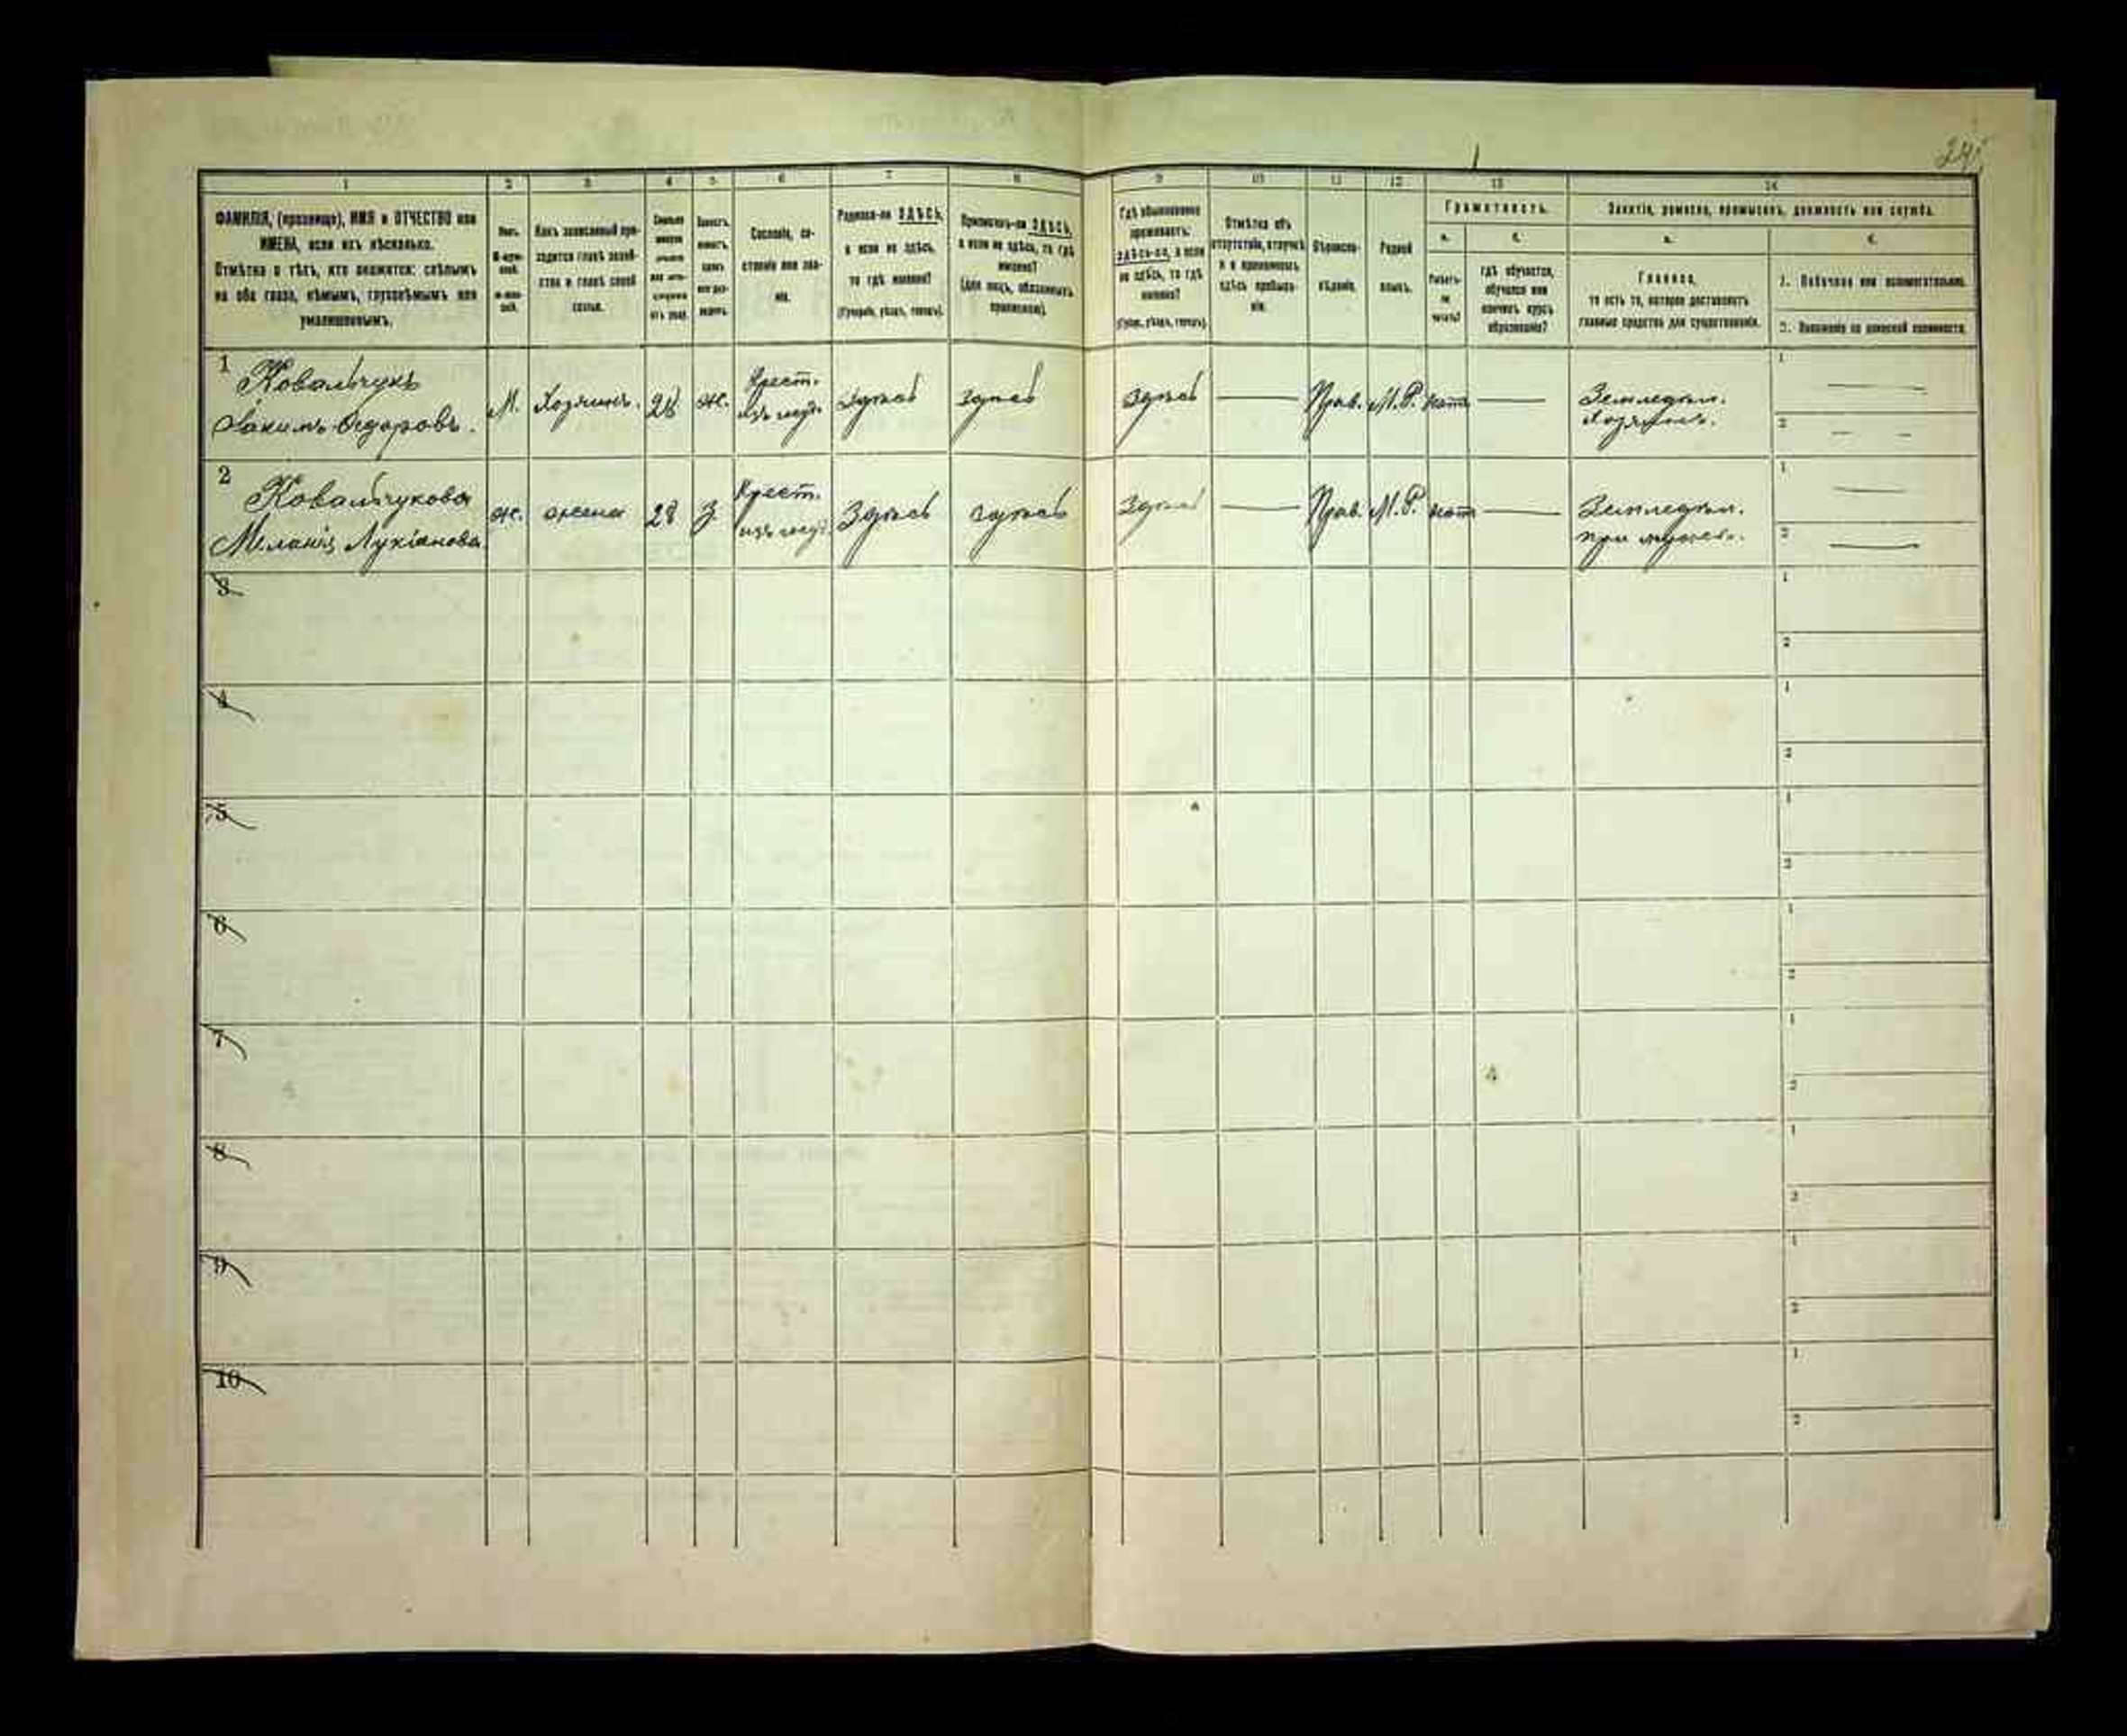 1 2 3 4 5 6 7 8 9 10 11 12 13 14
ФАМИЛІЯ, (прозвище), ИМЯ и ОТЧЕСТВО или
ИМЕНА, если ихъ нѣсколько.
Отмѣтка о тѣхъ, кто окажется: слѣпымъ
на оба глаза, нѣмымъ, глухонѣмымъ или
умалишеннымъ.
Полъ.
М-муж-
ской.
ж-жен-
скій.
Какъ записанный при-
ходится главѣ хозяй-
ства и главѣ своей
семьи.
Сословіе, со-
стояніе или зва-
ніе.
Родился-ли ЗДѢСЬ,
а если не здѣсь,
то гдѣ именно?
(Губернія, уѣздъ, городъ).
Приписанъ-ли ЗДѢСЬ,
а если не здѣсь, то гдѣ
именно?
(Для лицъ, обязанныхъ
припискою).
Гдѣ обыкновенно
проживаетъ:
здѣсь-ли, а если
не здѣсь, то гдѣ
именно?
(Губер., уѣздъ, городъ).
Отмѣтка объ
отсутствіи, отлучкѣ
и о временномъ
здѣсь пребыва-
ніи.
Вѣроиспо-
вѣданіе.
Родной
языкъ.
Грамотность.
а.
Умѣетъ-
ли
читать?
б.
гдѣ обучается,
обучался или
кончилъ курсъ
образованія?
Занятіе, ремесло, промыселъ, должность или служба.
а.
Главное,
то есть то, которое доставляетъ
главныя средства для существованія.
б.
1. Побочное или вспомогательное.
2. Положеніе по воинской повинности.
1 Ковальчукъ
Іакимъ Ѳедоровъ.
М. Хозяинъ. 28 ж. Крест. Здѣсь здѣсь здѣсь — Прав. М.Р. нѣтъ — Земледѣл. 1 —
Хозяинъ. 2 — —
2 Ковальчукова
Меланія Лукіанова
ж. жена 28 З. Крест. Здѣсь здѣсь Здѣсь — Прав. М.Р. нѣтъ — Земледѣл. 1 —
при мужѣ. 2 —
3 1
2
4 1
2
5 1
2
6 1
2
7 1
2
8 1
2
9 1
2
10 1
2